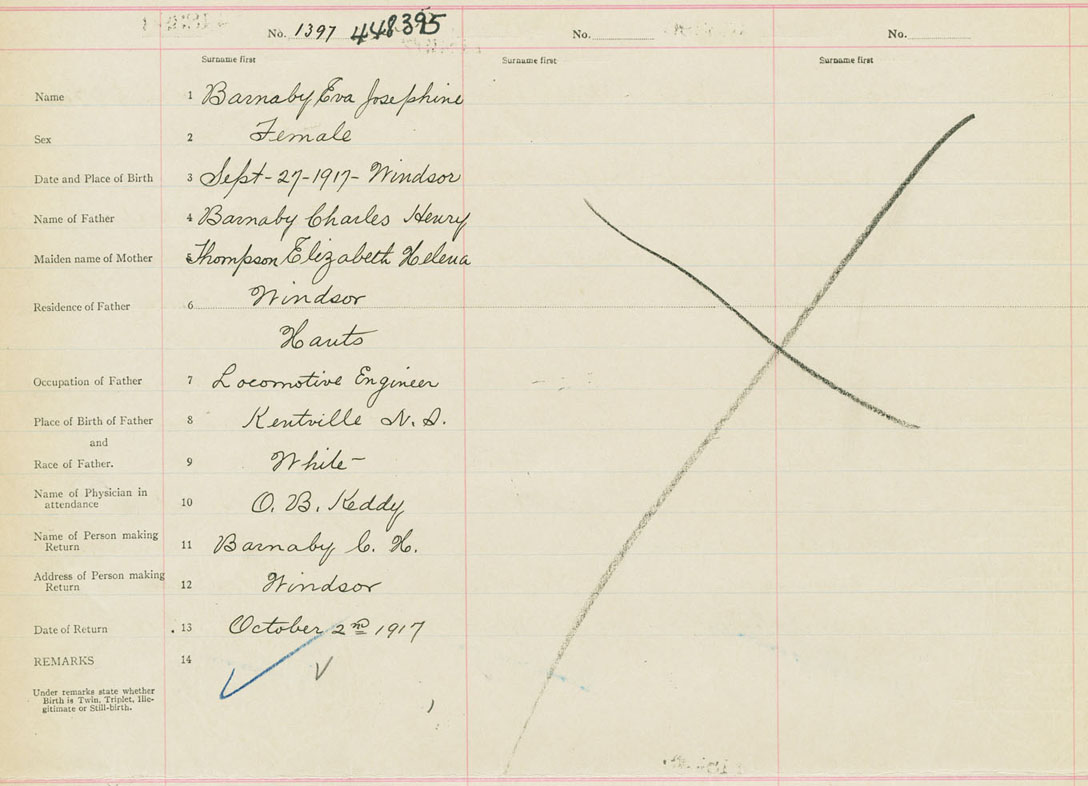 No. 1397 448395 No. No.
Surname first Surname first Surname first
Name 1 Barnaby Eva Josephine
Sex 2 Female
Date and Place of Birth 3 Sept-27-1917- Windsor
Name of Father 4 Barnaby Charles Henry
Maiden name of Mother 5 Thompson Elizabeth Helena
Residence of Father 6 Windsor
Hants
Occupation of Father 7 Locomotive Engineer
Place of Birth of Father 8 Kentville N.S.
and
Race of Father. 9 White-
Name of Physician in
attendance 10 O. B. Keddy
Name of Person making
Return 11 Barnaby C. H.
Address of Person making
Return 12 Windsor
Date of Return 13 October 2nd 1917
REMARKS 14
Under remarks state whether
Birth is Twin, Triplet, Ille-
gitimate or Still-birth.